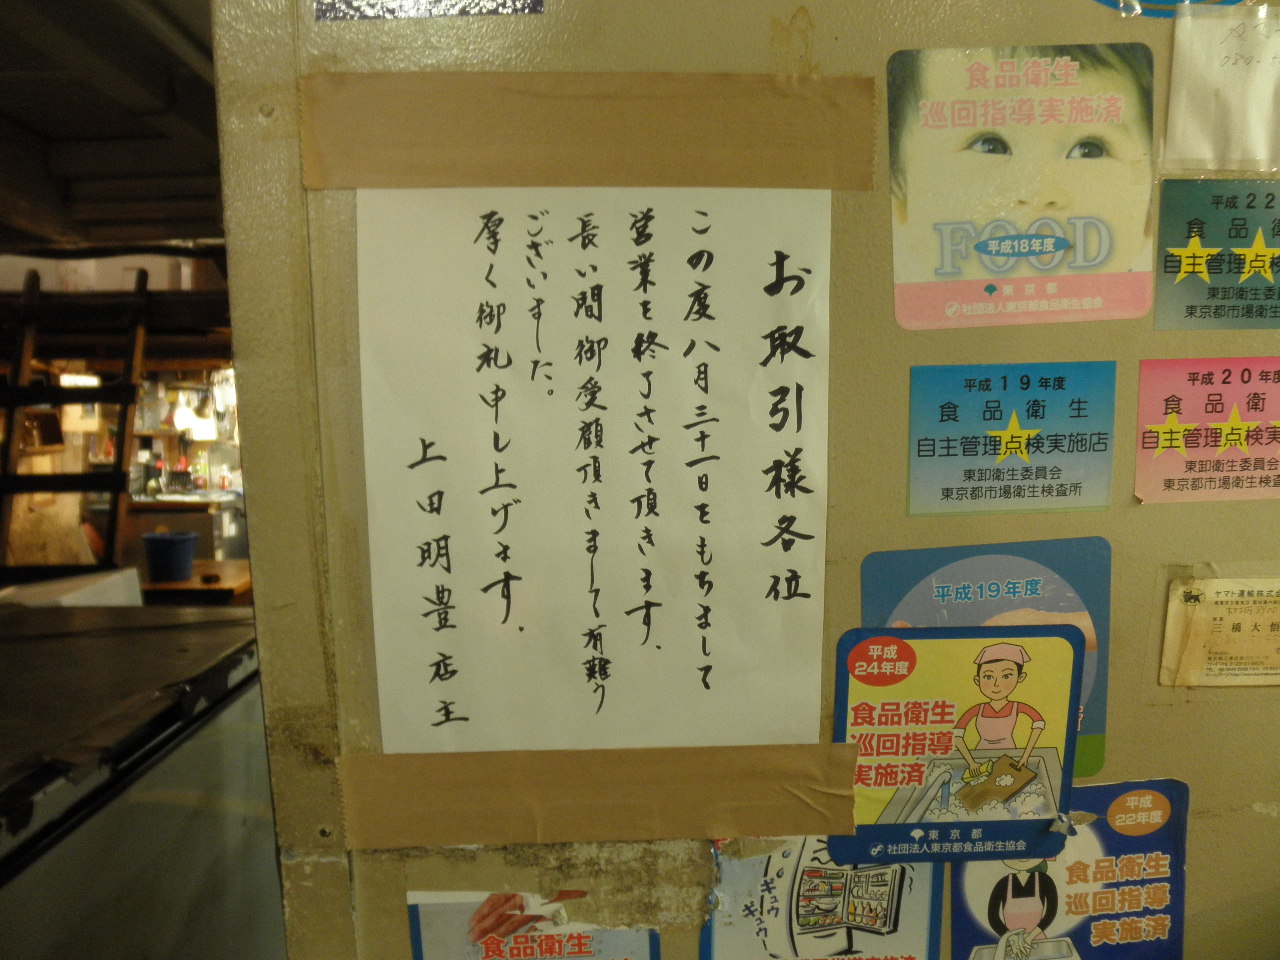 お取引様各位
この度八月三十一日をもちまして
営業を終了させて頂きます.
長い間御愛顧頂きまして有難う
ございました。
厚く御礼申し上げます.
上田明豊店主
食品衛生
巡回指導実施済
FOOD
平成18年度
東京都
社団法人東京都食品衛生協会
平成22
食品衛
自主管理点検
東卸衛生委員
東京都市場衛生
平成19年度
食品衛生
自主管理点検実施店
東卸衛生委員会
東京都市場衛生検査所
平成20年度
食品衛
自主管理点検実
東卸衛生委員会
東京都市場衛生検査
平成19年度
ヤマト運輸株式
三橋大
平成
24年度
食品衛生
巡回指導
実施済
東京都
社団法人東京都食品衛生協会
平成
22年度
食品衛生
巡回指導
実施済
ギュウ
ギュウー
食品衛生